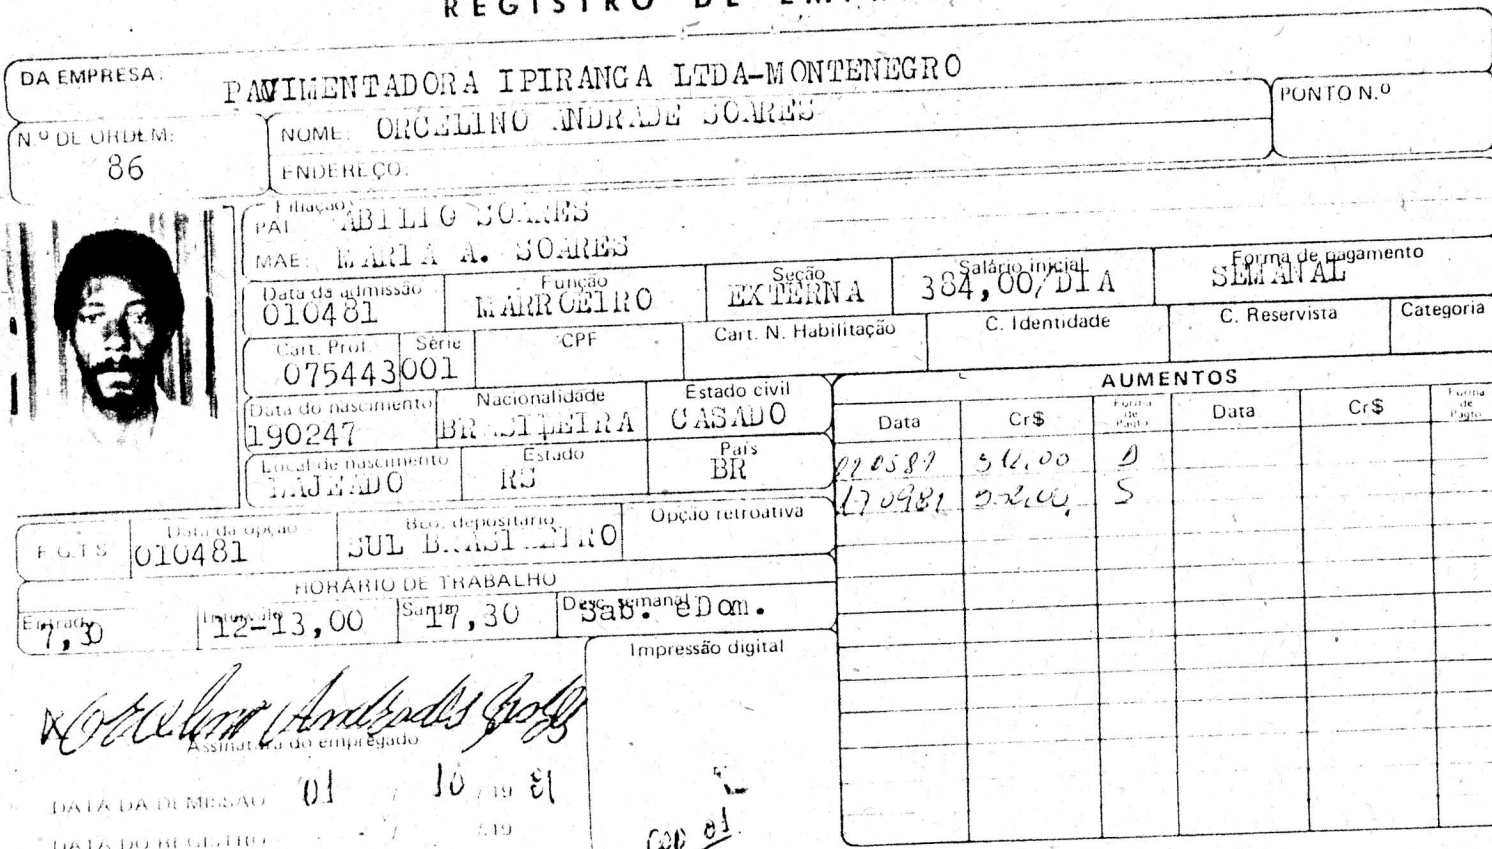 REGISTRO DE
DA EMPRESA: PAVIMENTADORA IPIRANGA LTDA-MONTENEGRO
N.º DE ORDEM: 86
NOME: ORCELINO ANDRADE SOARES
PONTO N.º
ENDEREÇO:
Filiação
PAI ABILIO SOARES
MAE: MARIA A. SOARES
Data da admissão 010481
Função MARROEIRO
Seção EXTERNA
Salário inicial 384,00/DIA
Forma de pagamento SEMANAL
Cart. Prof. 075443
Série 001
CPF
Cart. N. Habilitação
C. Identidade
C. Reservista
Categoria
Data do nascimento 190247
Nacionalidade BRASILEIRA
Estado civil CASADO
Local de nascimento LAJEADO
Estado RS
País BR
F.G.T.S
Data da opção 010481
Bco. depositário SUL BRASILEIRO
Opção retroativa
HORÁRIO DE TRABALHO
Entrada 7,30
Intervalo 12-13,00
Saída 17,30
Desc. semanal Sab. eDom.
AUMENTOS
Data Cr$ Forma de Pagto Data Cr$ Forma de Pagto
170981 S
Impressão digital
Assinatura do empregado
DATA DA DEMISSÃO 01 / 10 / 19 81
DATA DO REGISTRO / / 19